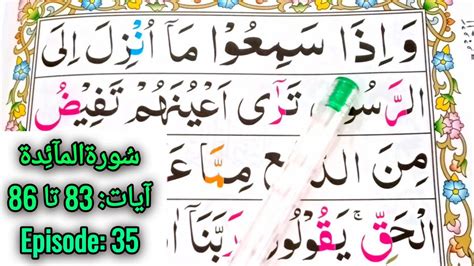 وَ اِذَا سَمِعُوْا مَاۤ اُنْزِلَ اِلَى
الرَّسُوْلِ تَرٰۤى اَعْيُنَهُمْ تَفِيْضُ
مِنَ الدَّمْعِ مِمَّا
الْحَقِّ ۚ يَقُوْلُوْنَ رَبَّنَاۤ
سُورۃالمآئِدۃ
آیات: 83 تا 86
Episode: 35